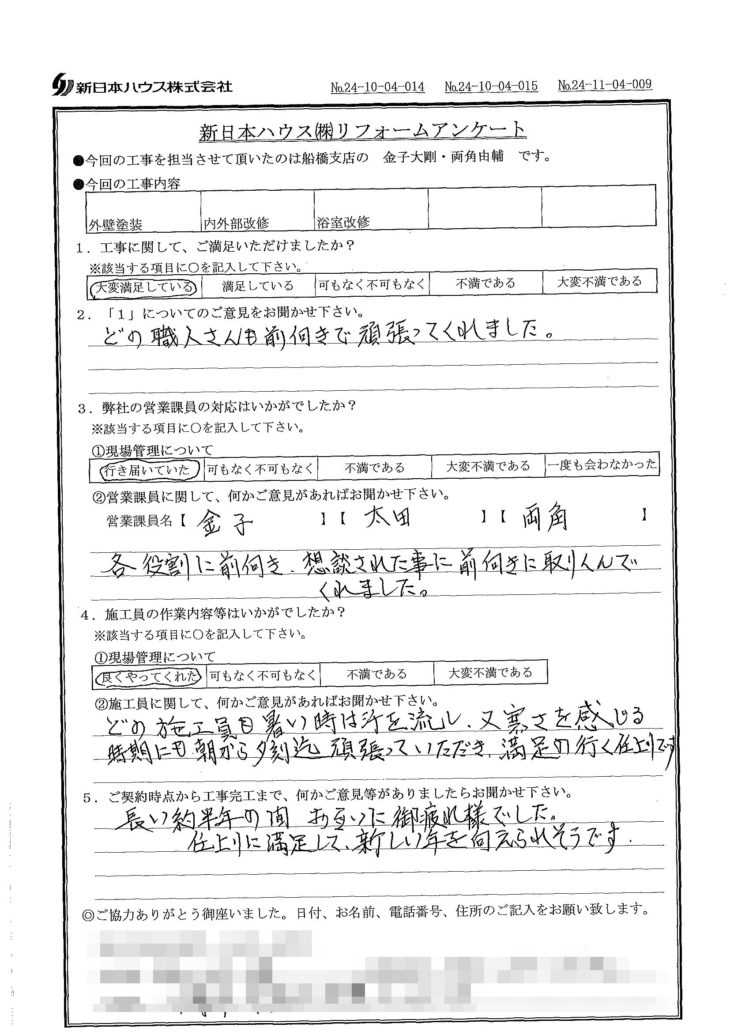 新日本ハウス株式会社 №24-10-04-014 №24-10-04-015 №24-11-04-009
新日本ハウス㈱リフォームアンケート
●今回の工事を担当させて頂いたのは船橋支店の 金子大剛・両角由輔 です。
●今回の工事内容
外壁塗装 内外部改修 浴室改修
1．工事に関して、ご満足いただけましたか？
※該当する項目に○を記入して下さい。
大変満足している 満足している 可もなく不可もなく 不満である 大変不満である
2．「1」についてのご意見をお聞かせ下さい。
どの職人さんも前向きで頑張ってくれました。
3．弊社の営業課員の対応はいかがでしたか？
※該当する項目に○を記入して下さい。
①現場管理について
行き届いていた 可もなく不可もなく 不満である 大変不満である 一度も会わなかった
②営業課員に関して、何かご意見があればお聞かせ下さい。
営業課員名【 金子 】【 太田 】【 両角 】
各役割に前向き、想談された事に前向きに取りくんで
くれました。
4．施工員の作業内容等はいかがでしたか？
※該当する項目に○を記入して下さい。
①現場管理について
良くやってくれた 可もなく不可もなく 不満である 大変不満である
②施工員に関して、何かご意見があればお聞かせ下さい。
どの施工員も暑い時は汗を流し、又寒さを感じる
時期にも朝から夕刻迄頑張っていただき、満足の行く仕上りです
5．ご契約時点から工事完工まで、何かご意見等がありましたらお聞かせ下さい。
長い約半年の間 お互いに御疲れ様でした。
仕上りに満足して、新しい年を向えられそうです．
◎ご協力ありがとう御座いました。日付、お名前、電話番号、住所のご記入をお願い致します。